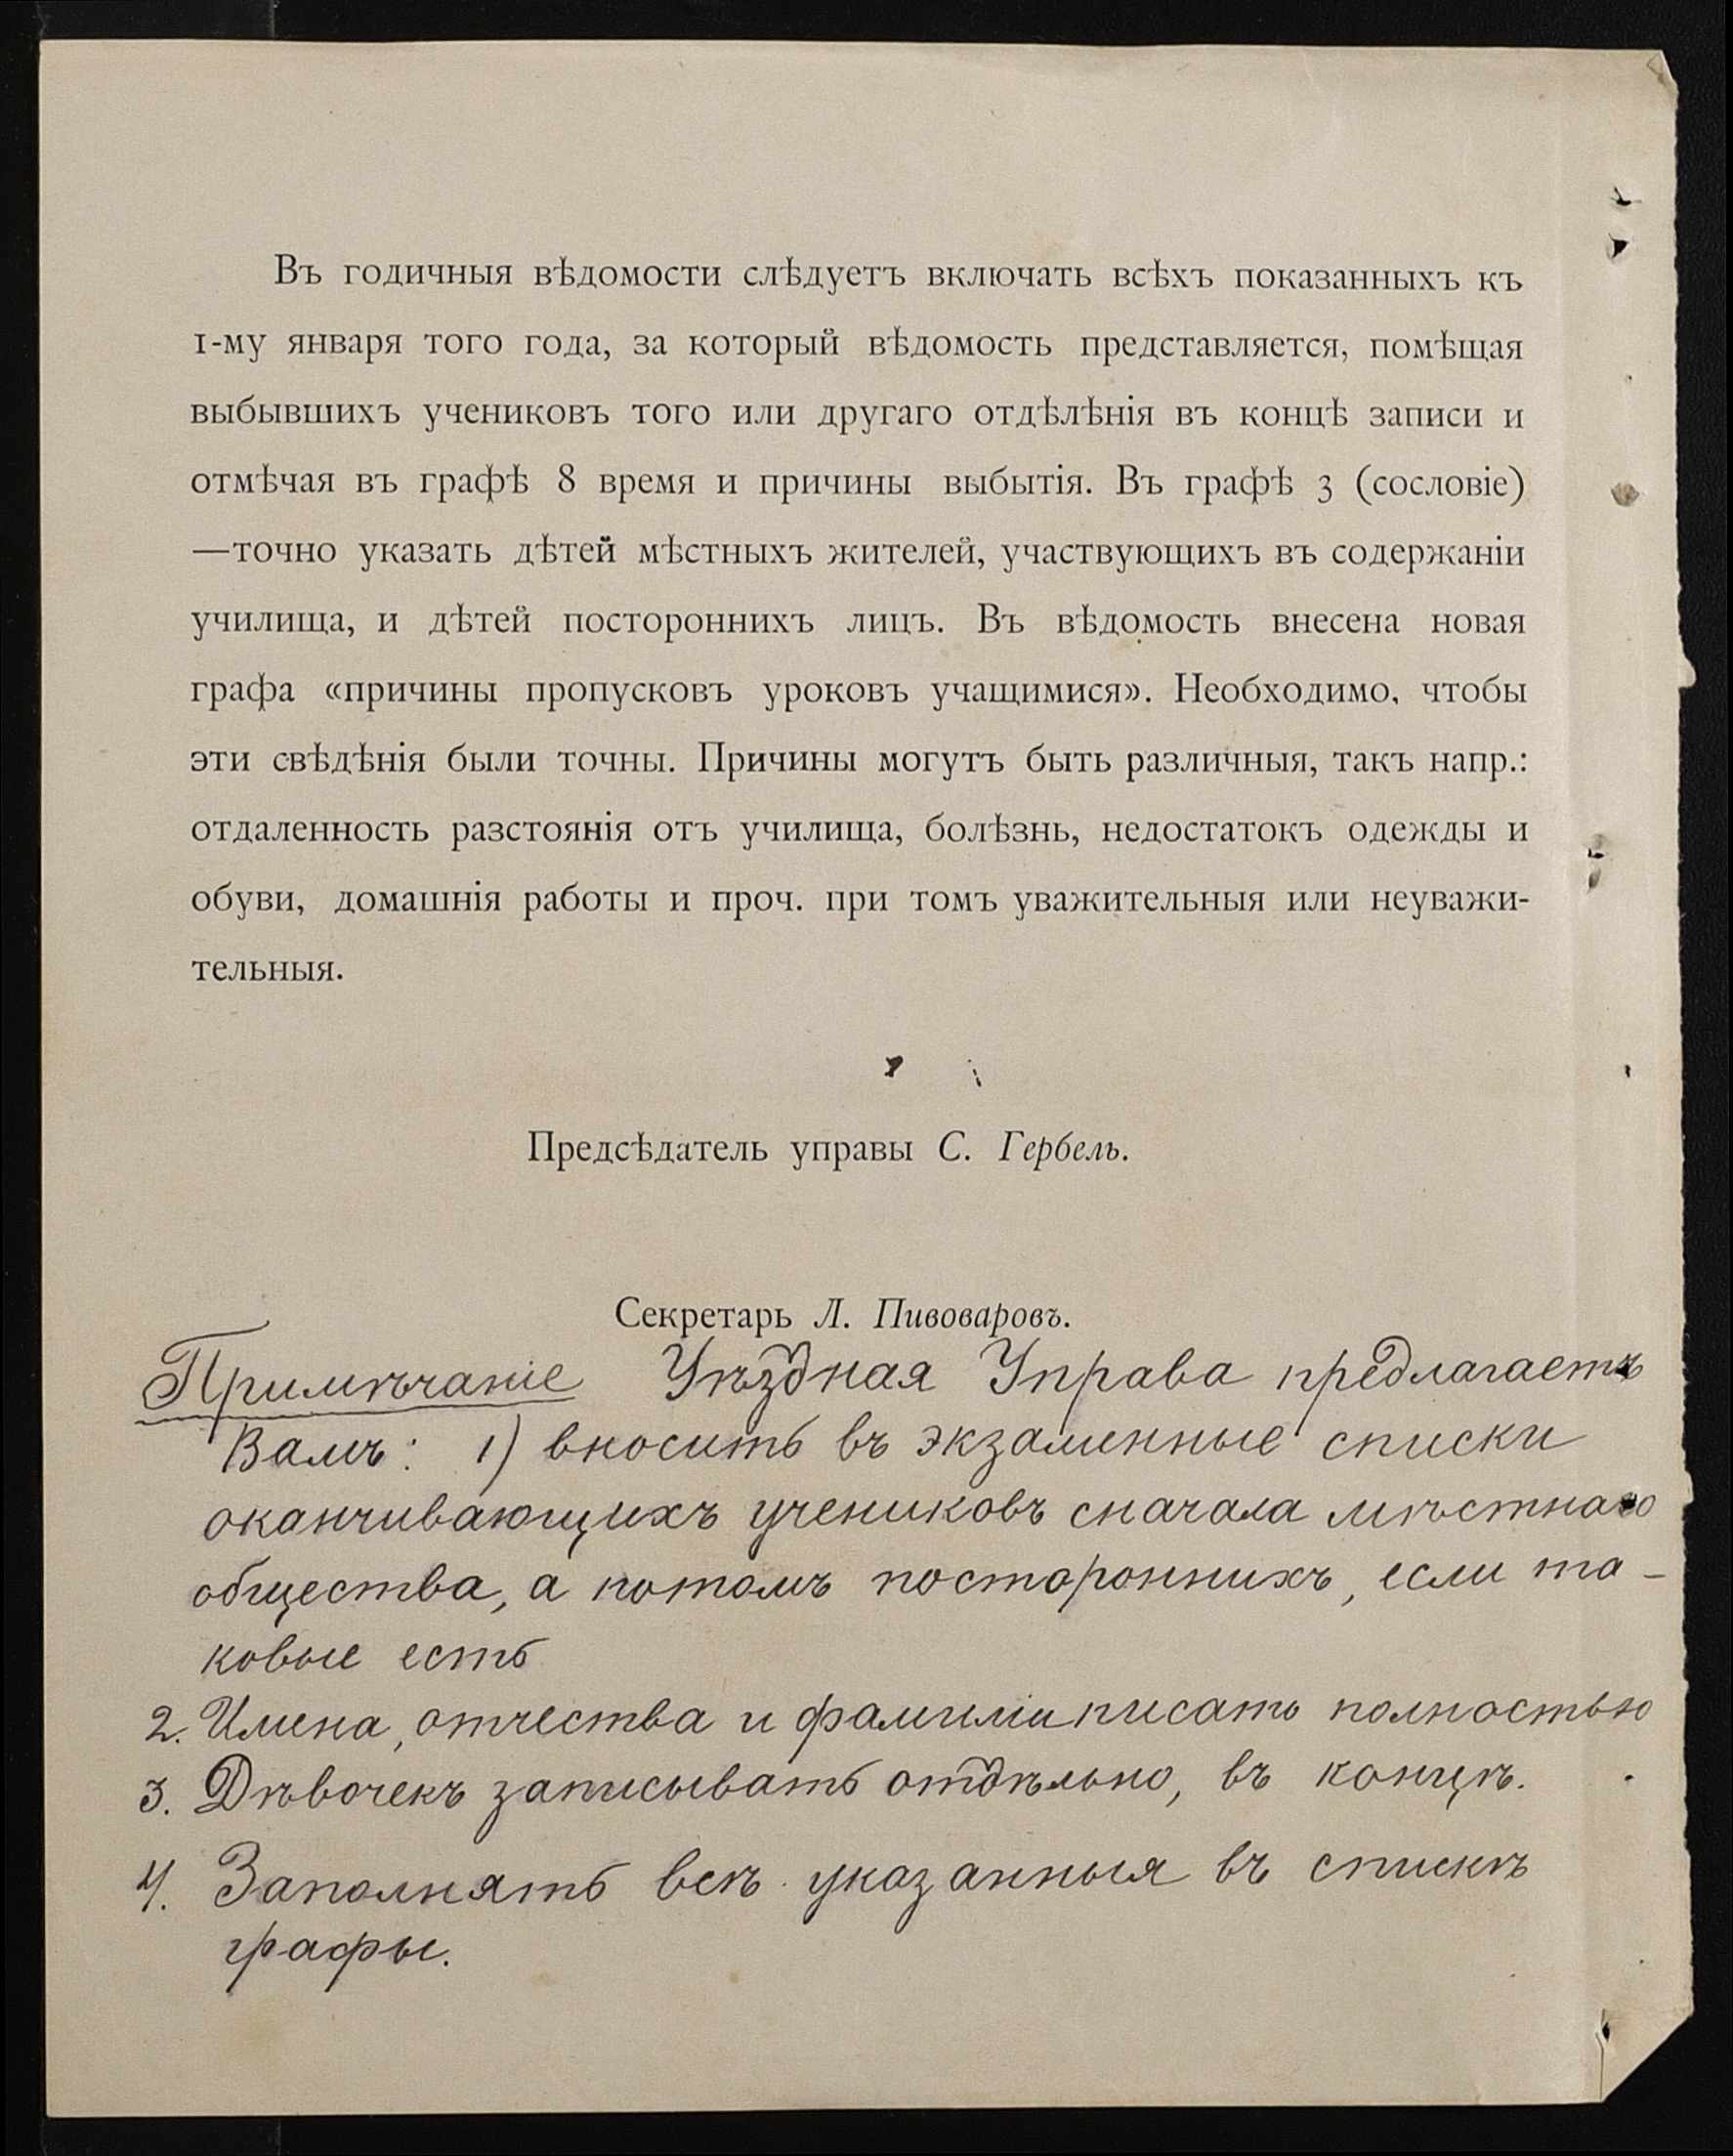 Въ годичныя вѣдомости слѣдуетъ включать всѣхъ показанныхъ къ
1-му января того года, за который вѣдомость представляется, помѣщая
выбывшихъ учениковъ того или другаго отдѣлѣнія въ концѣ записи и
отмѣчая въ графѣ 8 время и причины выбытія. Въ графѣ 3 (сословіе)
—точно указать дѣтей мѣстныхъ жителей, участвующихъ въ содержаніи
училища, и дѣтей постороннихъ лицъ. Въ вѣдомость внесена новая
графа «причины пропусковъ уроковъ учащимися». Необходимо, чтобы
эти свѣдѣнія были точны. Причины могутъ быть различныя, такъ напр.:
отдаленность разстоянія отъ училища, болѣзнь, недостатокъ одежды и
обуви, домашнія работы и проч. при томъ уважительныя или неуважи-
тельныя.
Предсѣдатель управы С. Гербель.
Секретарь Л. Пивоваровъ.
Примѣчаніе Уѣздная Управа предлагаетъ
Вамъ: 1) вносить въ экзаменные списки
оканчивающихъ учениковъ сначала мѣстнаго
общества, а потомъ постороннихъ, если та-
ковые есть
2. Имена, отчества и фамиліи писать полностью
3. Дѣвочекъ записывать отдѣльно, въ концѣ.
4. Заполнять всѣ указанныя въ спискѣ
графы.